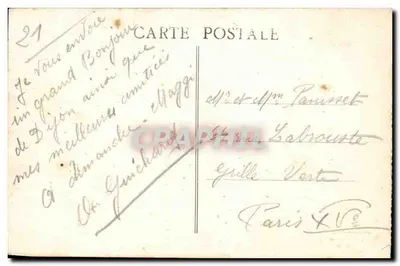 21
CARTE POSTALE
Je vous envoie
un grand Bonjour
de Dijon ainsi que
mes meilleures amitiés
A dimanche. Maggi
Guichard
Mr et Mme Panisset
rue Labrouste
Grille Verte
Paris XVe